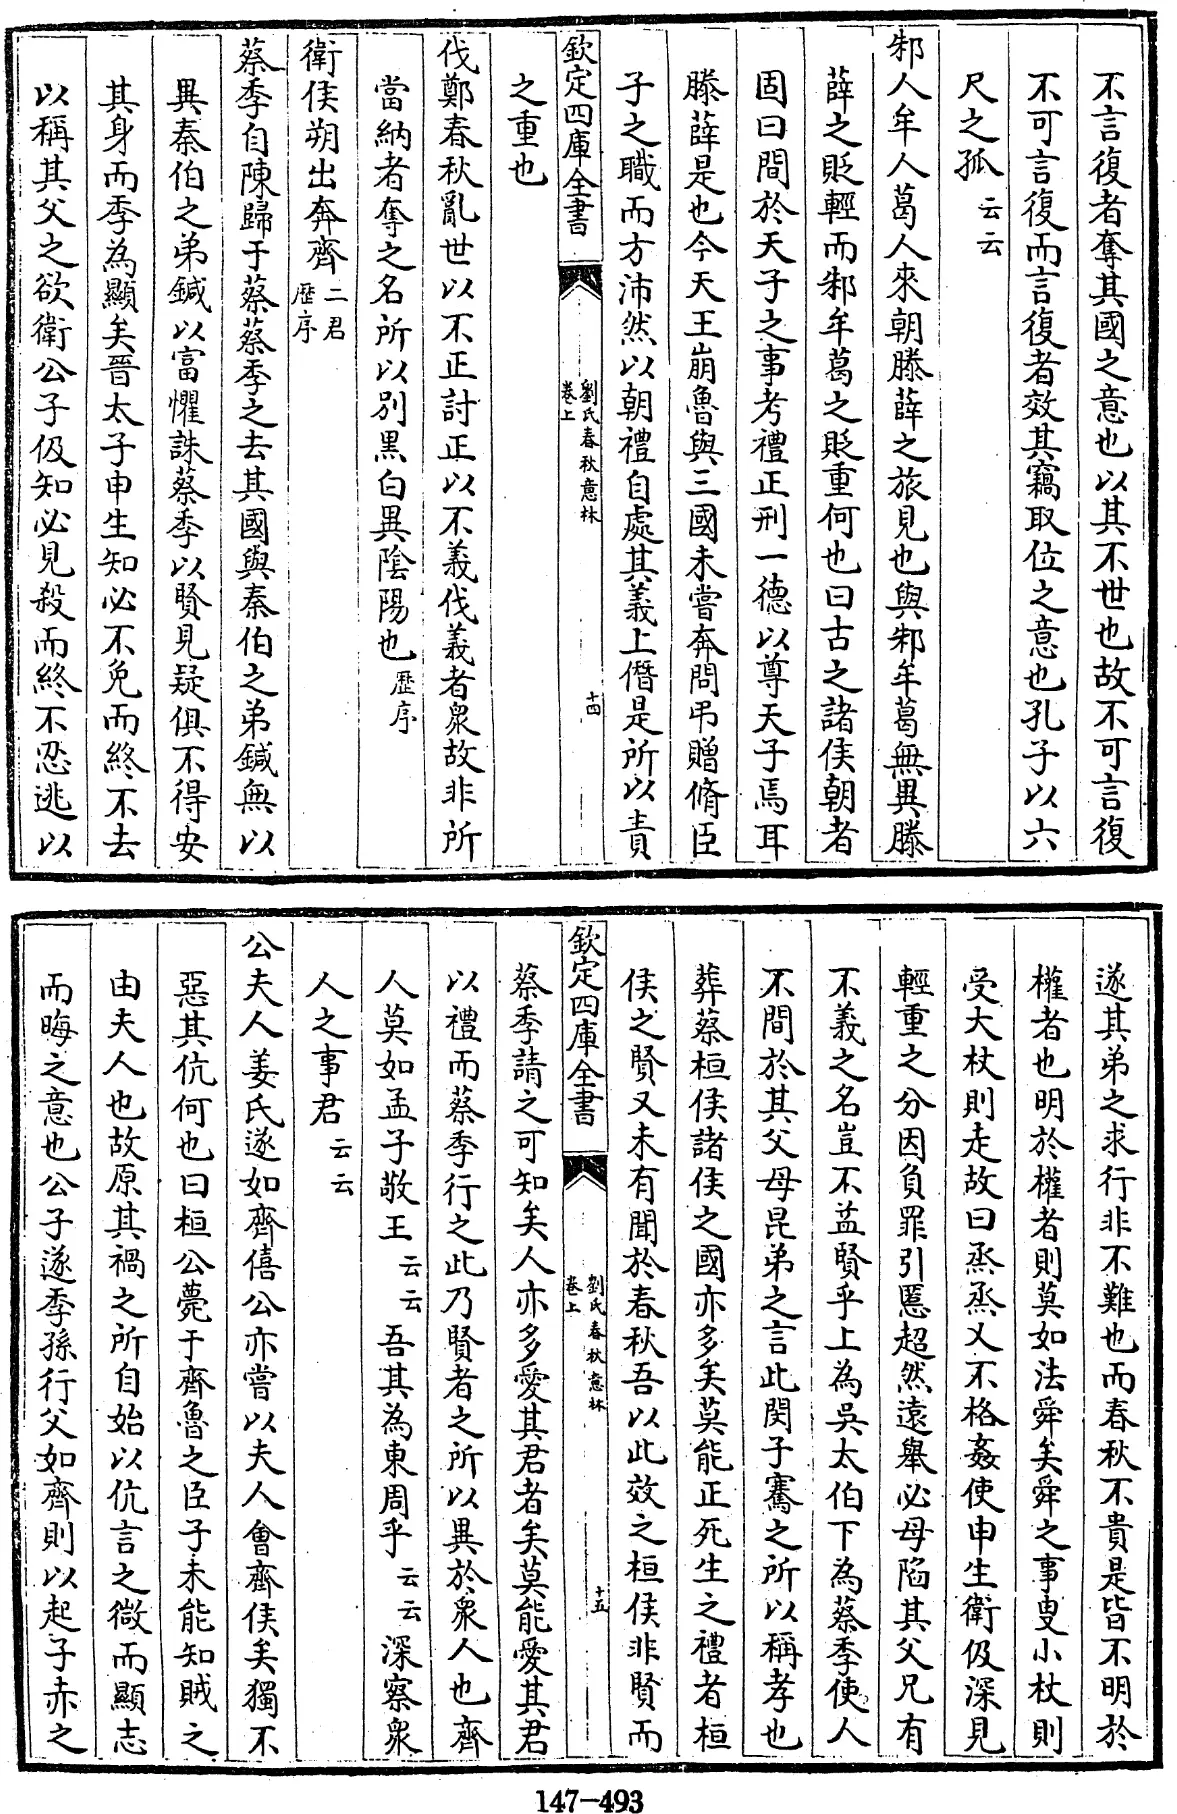 不言復者奪其國之意也以其不世也故不可言復
不可言復而言復者效其竊取位之意也孔子以六
尺之孤云云
邾人牟人葛人來朝滕薛之旅見也與邾牟葛無異滕
薛之貶輕而邾牟葛之貶重何也曰古之諸侯朝者
固曰間於天子之事考禮正刑一德以尊天子焉耳
滕薛是也今天王崩魯與三國未嘗奔問弔贈脩臣
子之職而方沛然以朝禮自處其義上僭是所以責
欽定四庫全書
劉氏春秋意林
卷上
十四
之重也
伐鄭春秋亂世以不正討正以不義伐義者衆故非所
當納者奪之名所以別黑白異陰陽也歷序
衛侯朔出奔齊二君歷序
蔡季自陳歸于蔡蔡季之去其國與秦伯之弟鍼無以
異秦伯之弟鍼以富懼誅蔡季以賢見疑俱不得安
其身而季為顯矣晉太子申生知必不免而終不去
以稱其父之欲衛公子伋知必見殺而終不忍逃以
遂其弟之求行非不難也而春秋不貴是皆不明於
權者也明於權者則莫如法舜矣舜之事叟小杖則
受大杖則走故曰烝烝乂不格姦使申生衛伋深見
輕重之分因負罪引慝超然遠舉必毋陷其父兄有
不義之名豈不益賢乎上為吳太伯下為蔡季使人
不間於其父母昆弟之言此閔子騫之所以稱孝也
葬蔡桓侯諸侯之國亦多矣莫能正死生之禮者桓
侯之賢又未有聞於春秋吾以此效之桓侯非賢而
欽定四庫全書
劉氏春秋意林
卷上
十五
蔡季請之可知矣人亦多愛其君者矣莫能愛其君
以禮而蔡季行之此乃賢者之所以異於衆人也齊
人莫如孟子敬王云云吾其為東周乎云云深察衆
人之事君云云
公夫人姜氏遂如齊僖公亦嘗以夫人會齊侯矣獨不
惡其伉何也曰桓公薨于齊魯之臣子未能知賊之
由夫人也故原其禍之所自始以伉言之微而顯志
而晦之意也公子遂季孫行父如齊則以起子赤之
147-493